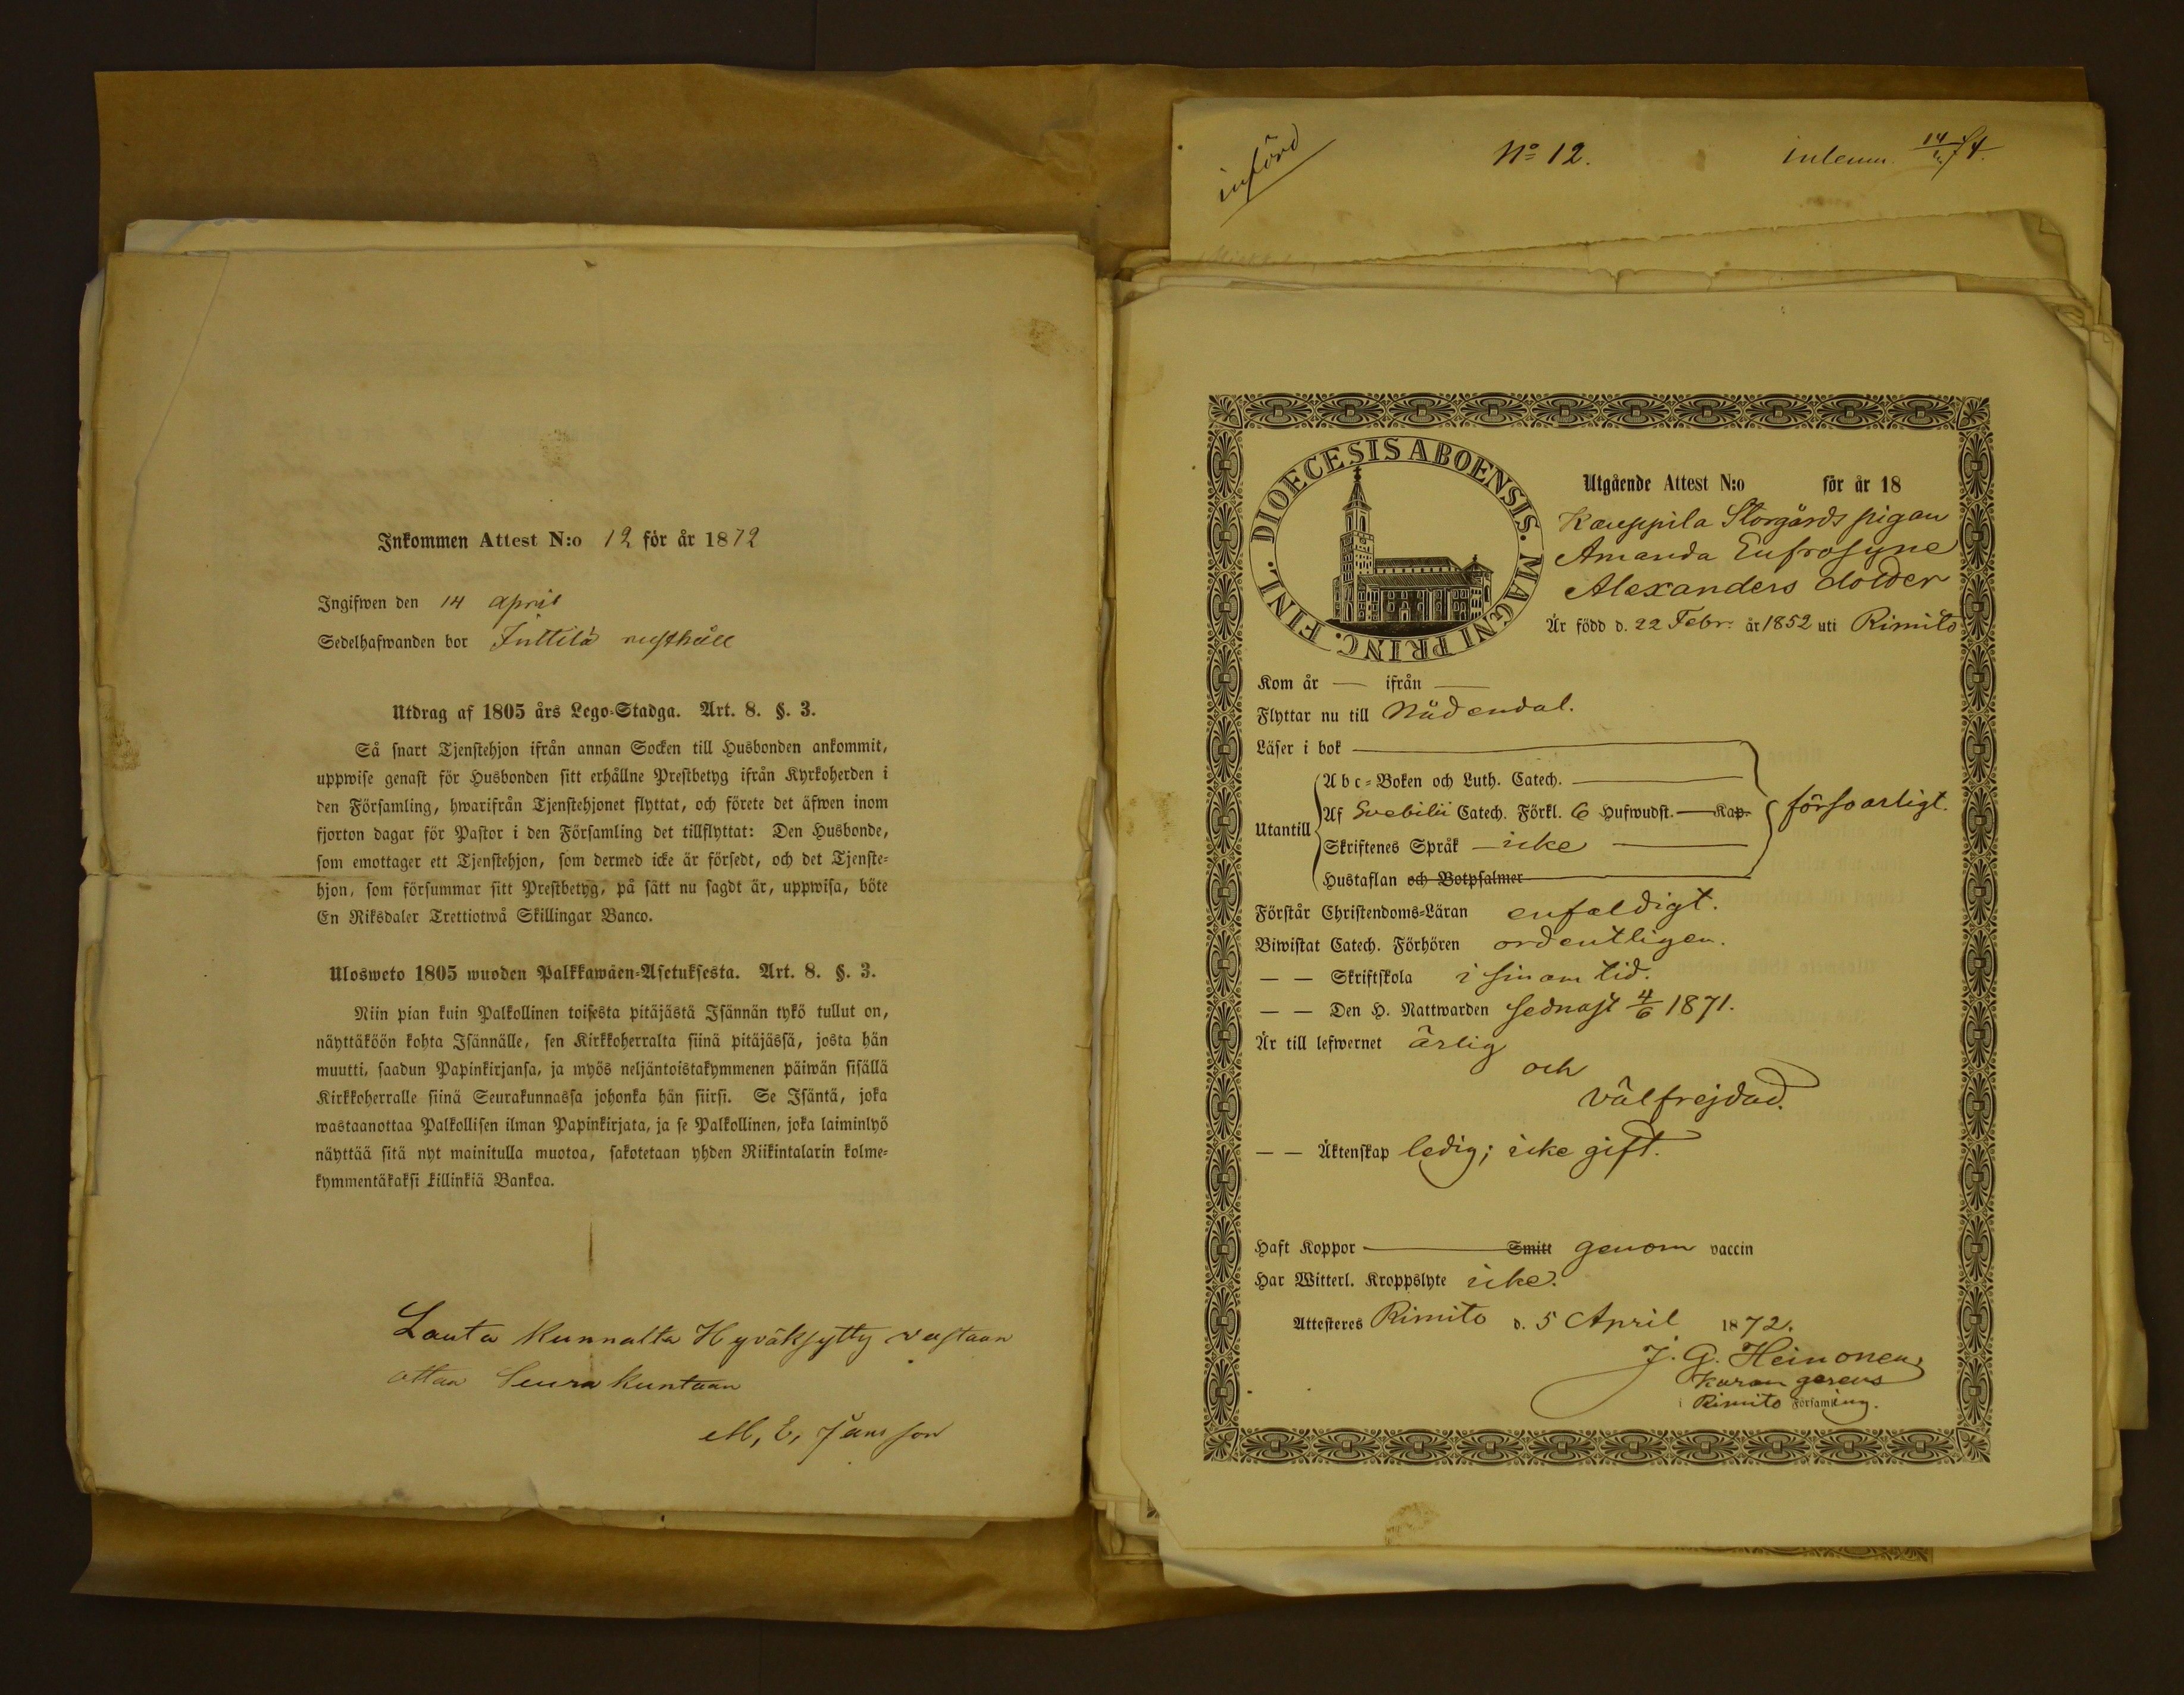 Inkommen Attest N:o 12 för år 1872
Ingifwen den 14 April
Sedelhafwanden bor Juttila rusthåll
Utdrag af 1805 års Lego-Stadga. Art. 8. §. 3.
Så snart Tjenstehjon ifrån annan Socken till Husbonden ankommit,
uppwise genast för Husbonden sitt erhållne Prestbetyg ifrån Kyrkoherden i
den Församling, hwarifrån Tjenstehjonet flyttat, och förete det äfwen inom
fjorton dagar för Pastor i den Församling det tillflyttat: Den Husbonde,
som emottager ett Tjenstehjon, som dermed icke är försedt, och det Tjenste-
hjon, som försummar sitt Prestbetyg, på sätt nu sagdt är, uppwisa, böte
En Riksdaler Trettiotwå Skillingar Banco.
Ulosweto 1805 wuoden Palkkawäen-Asetuksesta. Art. 8. §. 3.
Niin pian kuin Palkollinen toisesta pitäjästä Isännän tykö tullut on,
näyttäköön kohta Isännälle, sen Kirkkoherralta siinä pitäjässä, josta hän
muutti, saadun Papinkirjansa, ja myös neljäntoistakymmenen päiwän sisällä
Kirkkoherralle siinä Seurakunnassa johonka hän siirsi. Se Isäntä, joka
wastaanottaa Palkollisen ilman Papinkirjata, ja se Palkollinen, joka laiminlyö
näyttää sitä nyt mainitulla muotoa, sakotetaan yhden Riikintalarin kolme-
kymmentäkaksi killinkiä Bankoa.
Lauta kunnalta Hyväksytty vastaan
ottaa Seura kuntaan
M, E, Jansson
införd
No 12.
inlemn. 14/4
DIOECESIS ABOENSIS. MAGNI PRINC. FINL.
Utgående Attest N:o för år 18
Kauppila Storgårds pigan
Amanda Eufrosyne
Alexanders dotter
Är född d. 22 Febr. år 1852 uti Rimito
Kom år — ifrån —
Flyttar nu till Nådendal.
Läser i bok
Abc-Boken och Luth. Catech.
Utantill
Af Svebilii Catech. Förkl. 6 Hufwudst. — Kap.
försvarligt.
Skriftenes Språk — icke
Hustaflan och Botpsalmer
Förstår Christendoms-Läran enfaldigt.
Biwistat Catech. Förhören ordentligen.
— — Skriftskola i sinom tid.
— — Den H. Nattwarden sednast 4/6 1871.
Är till lefwernet ärlig
och
välfrejdad.
— — Äktenskap ledig; icke gift.
Haft Koppor — Smitt genom vaccin
Har Witterl. Kroppslyte icke.
Attesteres Rimito d. 5 April 1872.
J. G. Heinonen
kuram gerens
i Rimito Församling.